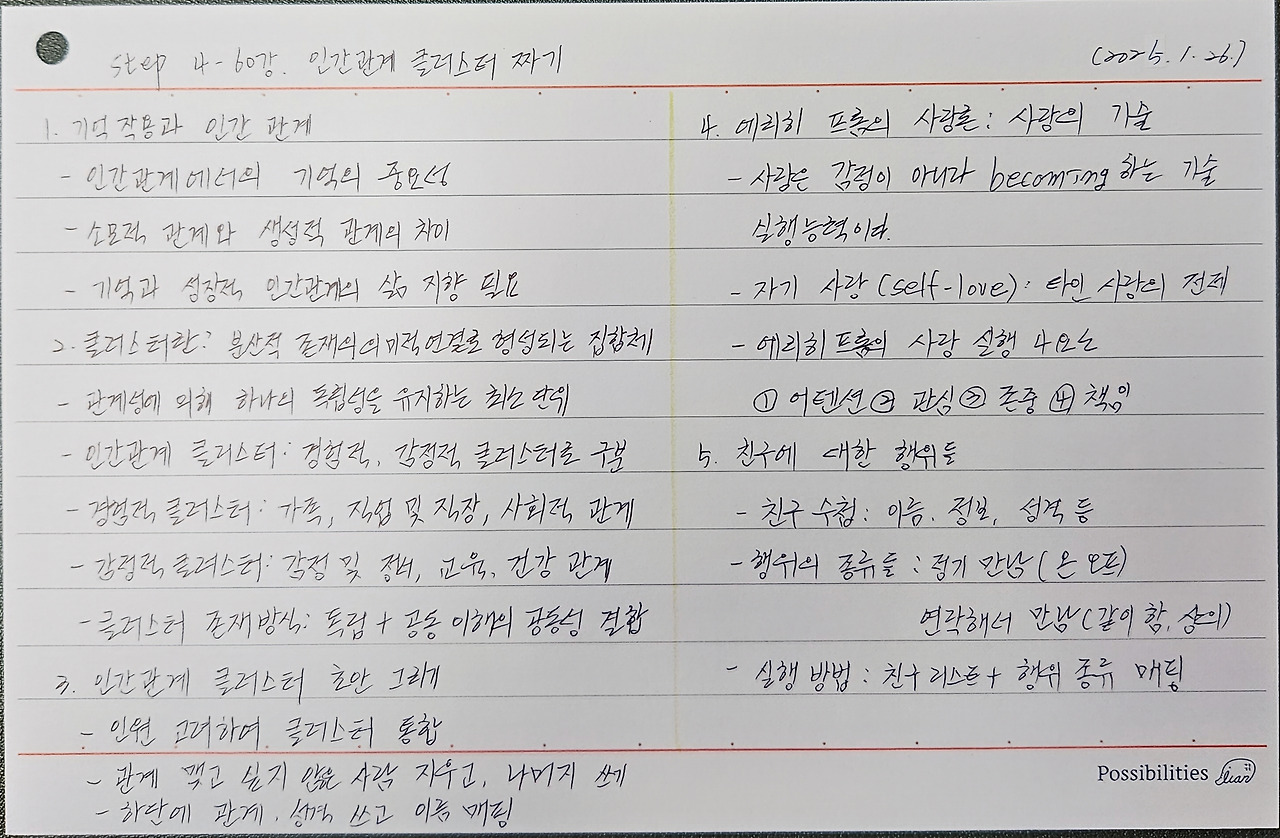 step 4-60강. 인간관계 클러스터 짜기
(2025. 1. 26.)
1. 기억작용과 인간 관계
- 인간관계에서의 기억의 중요성
- 소모적 관계와 생성적 관계의 차이
- 기억과 성장적 인간관계의 삶 지향 필요
2. 클러스터란? 분산적 존재의 의미적 연결로 형성되는 집합체
- 관계성에 의해 하나의 독립성을 유지하는 최소 단위
- 인간관계 클러스터: 경험적, 감정적 클러스터로 구분
- 경험적 클러스터: 가족, 직업 및 직장, 사회적 관계
- 감정적 클러스터: 감정 및 정서, 교육, 건강 관계
- 클러스터 존재방식: 독립 + 공동 이해의 공동성 결합
3. 인간관계 클러스터 초안 그리기
- 인원 고려하여 클러스터 통합
- 관계 맺고 싶지 않은 사람 지우고, 나머지 쓰기
- 하단에 관계, 성격 쓰고 이름 매핑
4. 에리히 프롬의 사랑론: 사랑의 기술
- 사랑은 감정이 아니라 becoming하는 기술
실행능력이다.
- 자기 사랑(self-love): 타인 사랑의 전제
- 에리히프롬의 사랑 실행 4요소
① 어텐션 ② 관심 ③ 존중 ④ 책임
5. 친구에 대한 행위들
- 친구 수첩: 이름. 정보, 성격 등
- 행위의 종류들: 정기 만남(온 오프)
연락해서 만남(같이 함, 상의)
- 실행 방법: 친구리스트+ 행위 종류 매핑
Possibilities